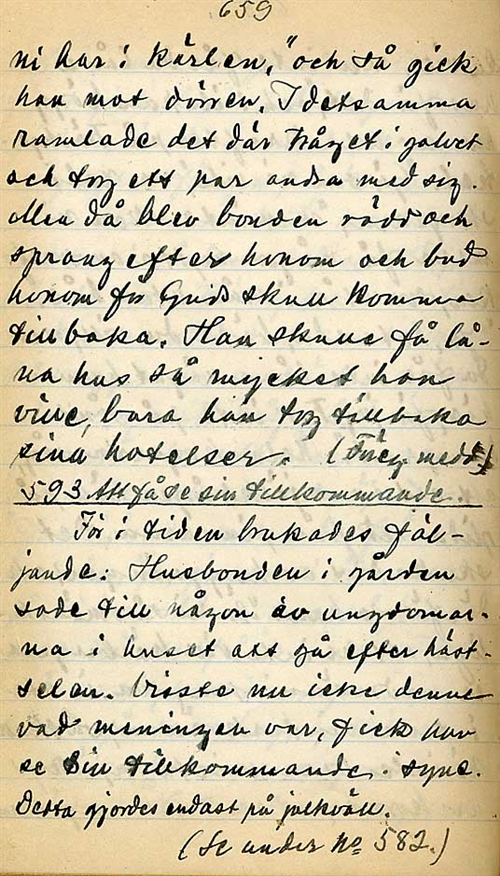 659
ni har i kärlen," och så gick
han mot dörren. I detsamma
ramlade det där tråget i golvet
och tog ett par andra med sig.
Men då blev bonden rädd och
sprang efter honom och bad
honom för Guds skull komma
tillbaka. Han skulle få lå-
na hus så mycket han
ville, bara han tog tillbaka
sina hotelser. (Föreg. medd.)
593 Att få se sin tillkommande.
För i tiden brukades föl-
jande: Husbonden i gården
sade till någon av ungdomar-
na i huset att gå efter häst-
selen. Visste nu icke denne
vad meningen var, fick han
se sin tillkommande i syne.
Detta gjordes endast på julkväll.
(Se under No 582.)